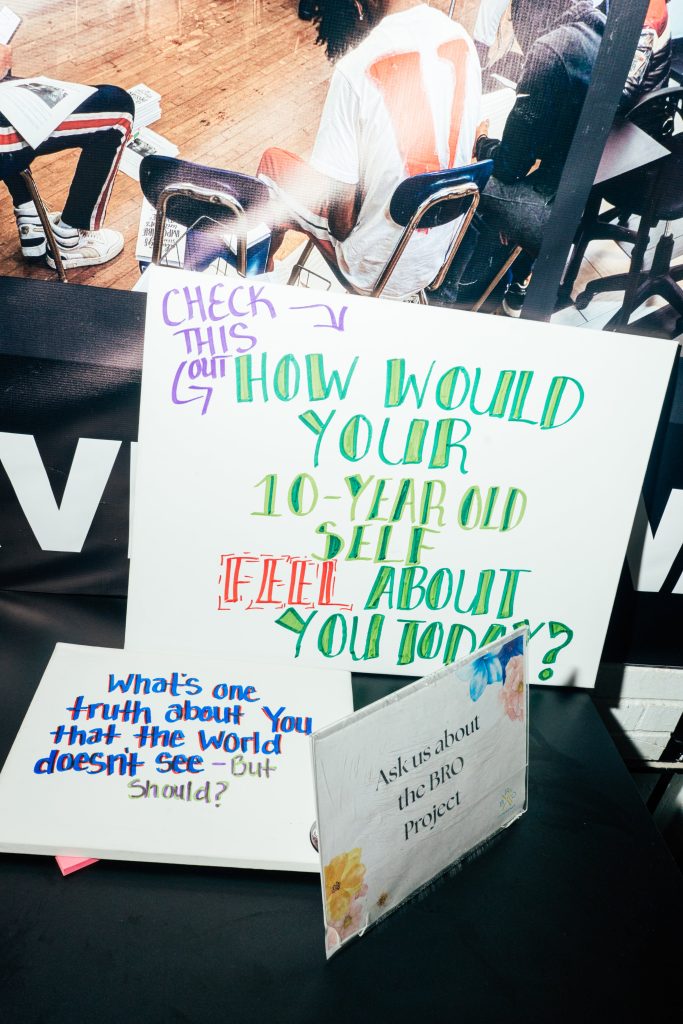 CHECK
THIS
OUT
HOW WOULD
YOUR
10-YEAR OLD
SELF
FEEL ABOUT
YOU TODAY?
What's one
truth about You
that the World
doesn't See - But
Should?
Ask us about
the BRO
Project